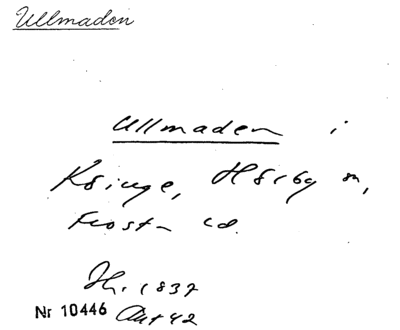 Ullmaden
Ullmaden i
Köinge, Hörby sn,
Frosta hd.
1837
Nr 10446 Akt 42